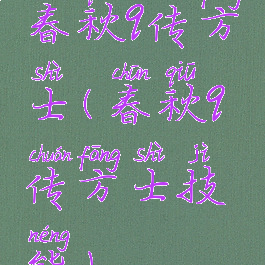 春秋9传方
shì chūn qiū
士(春秋9
chuán fāng shì jì
传方士技
néng
能)